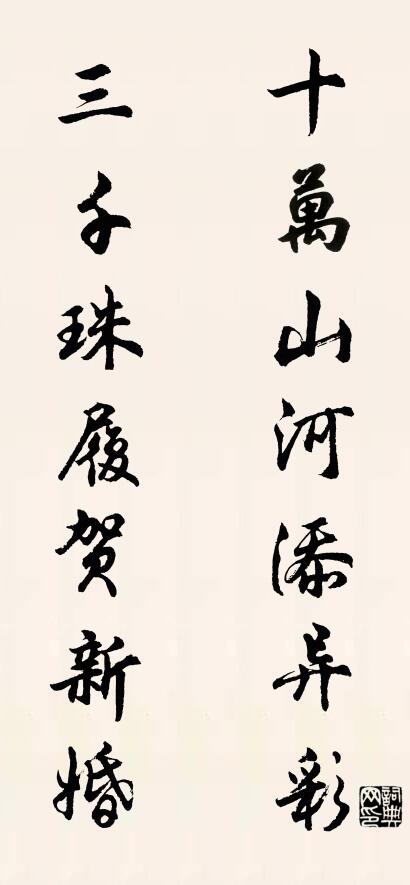 十萬山河添异彩
三千珠履贺新婚
詞典网印